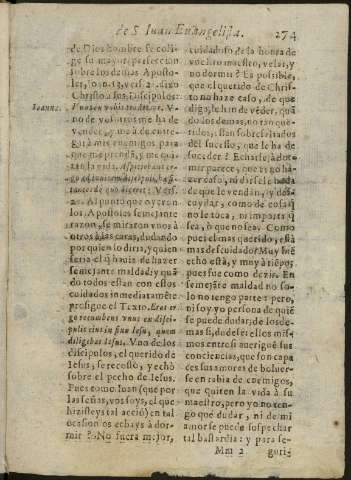 de S. Iuan Euangelista.
274
de Dios hombre se coli-
ge su mayor perfeccion
sobre los demas Aposto-
les, Ioan. 13, vers. 21. dixo
Christo a sos Discipulos:
IOANN.
Vnus ex vobis tradet me. V-
no de vosotros me ha de
vender, y me a de entre-
gar a mis enemigos para
que me prendā, y me qui-
zan la vida. Aspiciebant er-
go ad inuicem discipuli, hæsi-
tantes de quo diceret: Vers.
22. Al punto que oyeron
los Apostoles semejante
razon, se miraron vnos à
otros à las caras, dudando
por quien lo diria, y quien
seria el q̃ hauia de hazer
semejante maldad: y quā
do todos estan con estos
cuidados inmediatamēte
prosigue el Texto. Erat er-
go recumbens vnus ex disci-
pulis eius in sinu Iesu, quem
diligebat Iesus. Vno de los
discipulos, el querido de
Iesus, se recostò, y echò
sobre el pecho de Iesus.
Pues como Iuan (que por
las señas, vos soys, el que
hizisteys tal acciō) en tal
ocasion os echays à dor-
mir? No fuera mejor,
cuidadoso de la honra de
vuestro maestro, velar, y
no dormir? Es possible,
que el querido de Chris-
to no haze caso, de que
digã, le han de vēder, quā
do los demas, no tan que-
ridos, estan sobresaltados
del sucesso, que le ha de
suceder? Echarse à dor-
mir parece, que es no ha-
zer caso, ni darsele nada
de que le vendan, y des-
cuydar, como de cosa q̃
no le toca, ni importa q̃
sea, ò que no sea. Como
pues el mas querido, està
mas descuidado? Muy biē
echo està, y muy à tiēpo;
pues fue como dezir. En
semejāte maldad no so-
lo no tengo parte: pero,
ni soy yo persona de quiē
se puede dudar; de los de-
mas si, dudese: ellos mis-
mos entre si auerigue sus
conciencias, que son capa
ces sus amores de boluer-
se en rabia de enemigos,
que quiten la vida à su
maestro, pero yo no ten-
go que dudar, ni de mi
amor se puede sospechar
tal bastardia: y para se-
Mm 2
guris